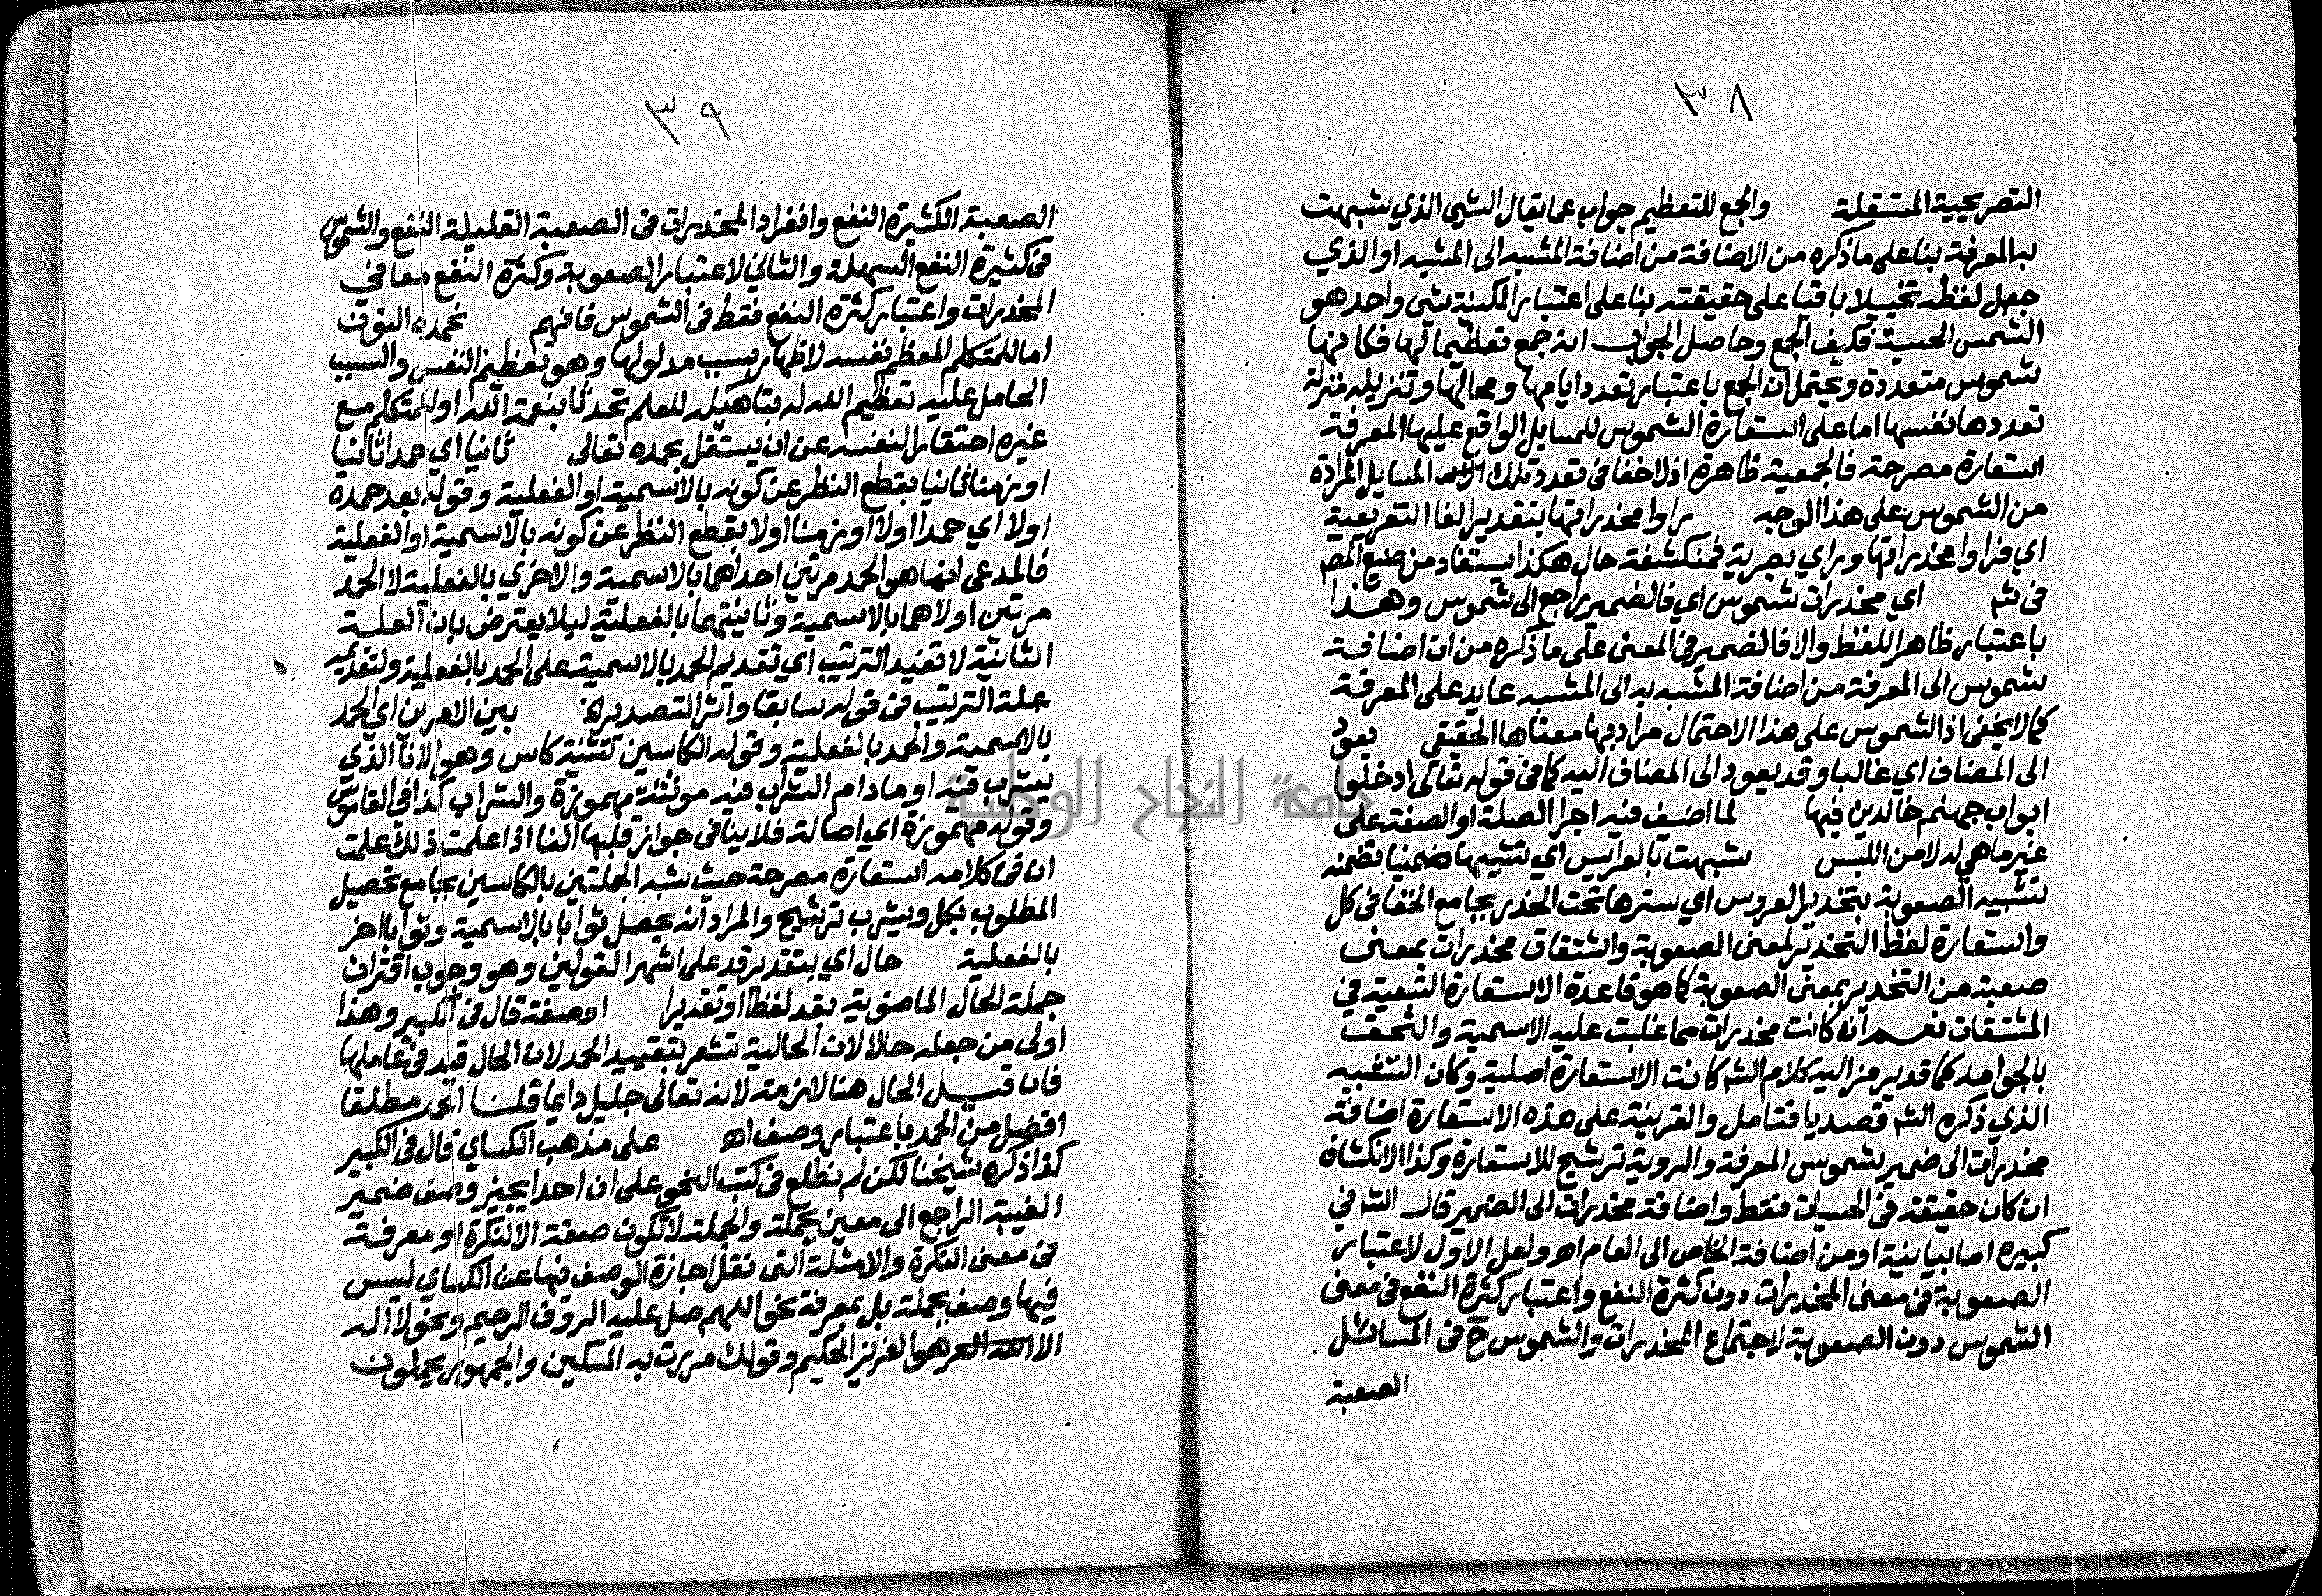 ٣٨
التصريحية المستقلة والجمع للتعظيم جواب عما يقال الشيئ الذي شبهت
به المعرفة بنا على ما ذكره من الاضافة من اضافة المشبه الى المشبه او الذي
جعل لفظه تخييلا باقيا على حقيقته بنا على اعتبار المكنية شئ واحد هو
الشمس الحسية فكيف الجمع وحاصل الجواب انه جمع تعظيما لها فكانها
شموس متعددة ويحتمل ان الجمع باعتبار تعدد ايامها ومحالها وتنزيله منزلة
تعددها نفسها اما على استعارة الشموس للمسايل الواقع عليها المعرفة
استعارة مصرحة فالجمعية ظاهرة اذ لا خفا في تعدد تلك المسايل المرادة
من الشموس على هذا الوجه راوا مخدراتها بتقدير الفا التفريعية
اي فراوا مخدراتها وراي بصرية فمنكشفة حال هكذا يستفاد من صنيع المصـ
في شـ اي مخدرات شموس اي فالضمير راجع الى شموس وهذا
باعتبار ظاهر اللفظ والا فالضمير في المعنى على ما ذكره من ان اضافة
شموس الى المعرفة من اضافة المشبه به الى المشبه عايد على المعرفة
كما لا يخفى اذ الشموس على هذا الاحتمال مراد بها معناها الحقيقي يعود
الى المضاف اي غالبا وقد يعود الى المضاف اليه كما في قوله تعالى ادخلوا
ابواب جهنم خالدين فيها لما اضيف فيه اجرا الصلة او الصفة على
غير ما هي له لا من اللبس شبهت بالعرايس اي تشبيها ضمنيا تضمنه
تشبيه الصعوبة بتخدير العروس اي سترها تحت الخدر بجامع الخفا في كل
واستعارة لفظ التخدير لمعنى الصعوبة واشتقاق مخدرات بمعنى
صعبة من التخدير بمعنى الصعوبة كما هو قاعدة الاستعارة التبعية في
المشتقات نعم ان كانت مخدرات مما غلبت عليه الاسمية والتحق
بالجوامد كما قد يرمز اليه كلام الشـ كانت الاستعارة اصلية وكان التشبيه
الذي ذكره الشـ قصديا فتامل والقرينة على هذه الاستعارة اضافة
مخدرات الى ضمير شموس المعرفة والروية ترشيح للاستعارة وكذا الانكشاف
ان كان حقيقة في الحسيات فقط واضافة مخدرات الى الضمير قال الشـ في
كبيره اما بيانية او من اضافة الخاص الى العام اهـ ولعل الاول لاعتبار
الصعوبة في معنى المخدرات دون كثرة النفع واعتبار كثرة النفع في معنى
الشموس دون الصعوبة لاجتماع المخدرات والشموس ح في المسائل
الصعبة
٣٩
الصعبة الكثيرة النفع وانفراد المخدرات في الصعبة القليلة النفع والشموس
في كثيرة النفع السهلة والثاني لاعتبار الصعوبة وكثرة النفع معا في
المخدرات واعتبار كثرة النفع فقط في الشموس فافهم نحمده النون
اما للمتكلم المعظم نفسه لاظهار سبب مدلولها وهو تعظيم النفس والسبب
الحامل عليه تعظيم الله له بتاهيله للعلم تحدثا بنعمة الله او للمتكلم مع
غيره احتقارا لنفسه عن ان يستقل بحمده تعالى ثانيا اي حمدا ثانيا
او زمنا ثانيا بقطع النظر عن كونه بالاسمية او الفعلية وقوله بعد حمده
اولا اي حمدا اولا او زمنا اولا بقطع النظر عن كونه بالاسمية او الفعلية
فالمدعى انما هو الحمد مرتين احداها بالاسمية والاخرى بالفعلية لا الحمد
مرتين اولاهما بالاسمية وثانيتهما بالفعلية ليلا يعترض بان العلة
الثانية لا تفيد الترتيب اي تقديم الحمد بالاسمية على الحمد بالفعلية ولتقديمه
علة الترتيب في قوله سابقا واثر التصدير الخ بين الامرين اي الحمد
بالاسمية والحمد بالفعلية وقوله الكاسين تثنية كاس وهو الانا الذي
يشرب فيه او ما دام الشراب فيه مونثة مهموزة والشراب كذا في القاموس
وقوله مهموزة اي اصالة فلا ينافي جواز قلبها الفا اذا علمت ذلك علمت
ان في كلامه استعارة مصرحة حيث شبه الجملتين بالكاسين بجامع تحصيل
المطلوب بكل ويشرب ترشيح والمراد انه يحصل ثوابا بالاسمية وثوابا اخر
بالفعلية حال اي بتقدير قد على اشهر القولين وهو وجوب اقتران
جملة الحال الماضوية بقد لفظا او تقديرا او صفة قال في الكبير وهذا
اولى من جعله حالا لان الحالية تشعر بتقييد الحمد لان الحال قيد في عاملها
فان قيل الحال هنا لازمة لانه تعالى جليل دايما قلنا اتى مطلقا
افضل من الحمد باعتبار وصف اهـ على مذهب الكساي قال في الكبير
كذا ذكره شيخنا لكن لم نطلع في كتب النحو على ان احدا يجيز وصف ضمير
الغيبة الراجع الى معين بجملة والجملة لا تكون صفة الا لنكرة او معرفة
في معنى النكرة والامثلة التى نقل اجازة الوصف فيها عن الكساي ليس
فيها وصف بجملة بل بمعرفة نحو اللهم صل عليه الروف الرحيم ونحو لا اله
الا هو العزيز الحكيم وقولك مررت به المسكين والجمهور يحملون
جامعة النجاح الوطنية